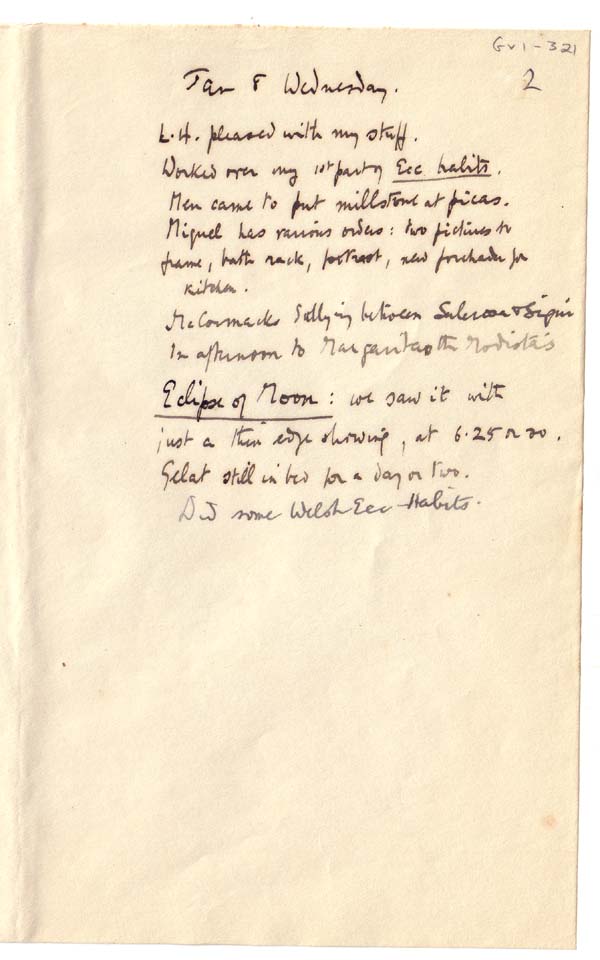 GV1-321
2
Jan 8 Wednesday.
L.H. pleased with my stuff.
Worked over my 1st part of Ecc habits.
Men came to put millstone at picas.
Miguel has various orders: two pictures to
frame, bath rack, footrest, new for
kitchen.
McCormacks between Salerosa & Siguir
In afternoon to Margarita the Modista's
Eclipse of Moon: we saw it with
just a thin edge showing, at 6.25 or 30.
Gelat still in bed for a day or two.
Did some Welsh Ecc Habits.